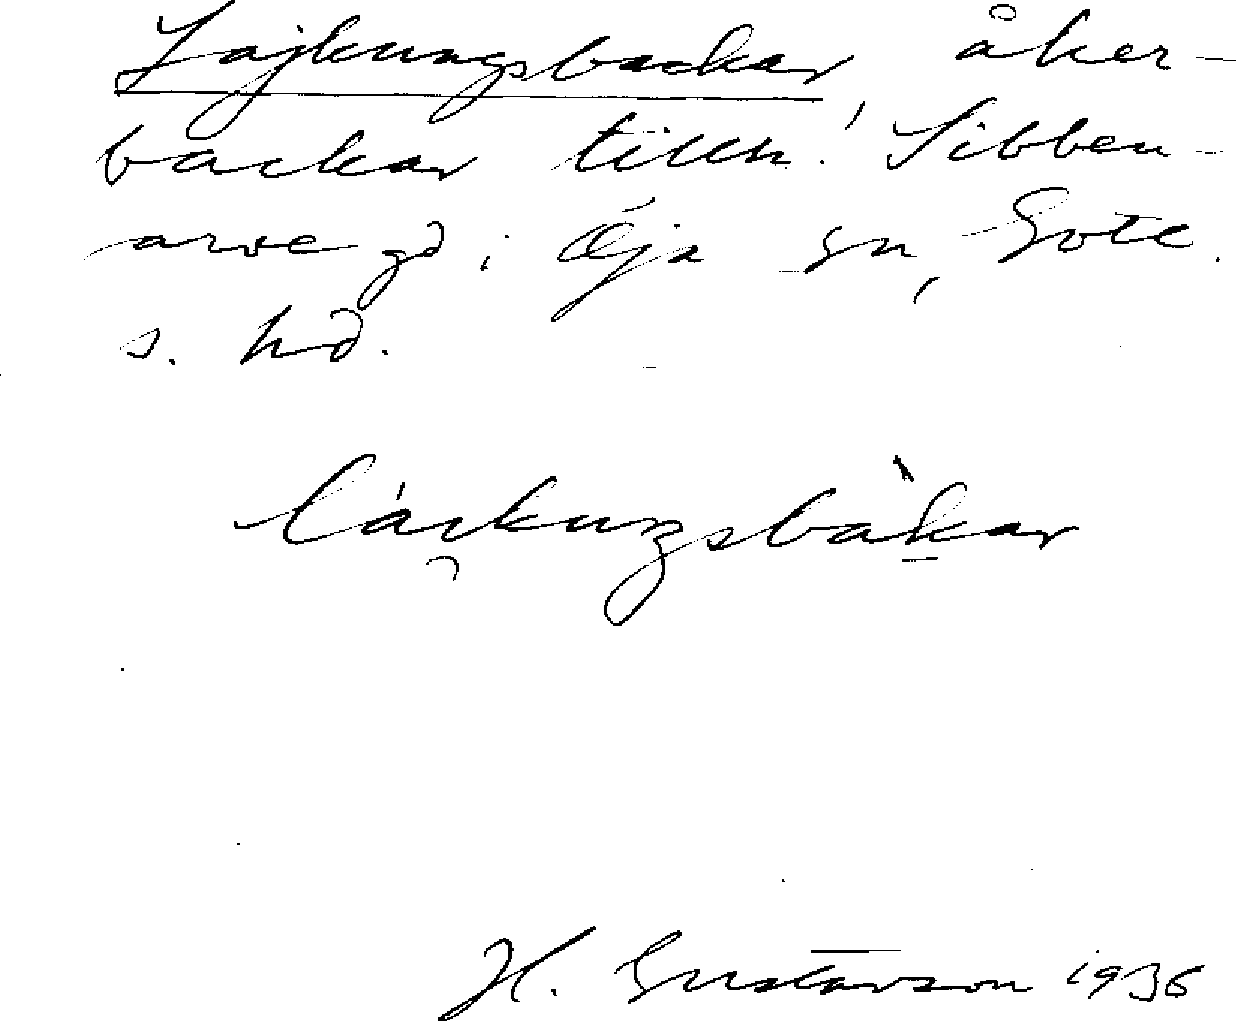 Lajkungsbackar, åker-
backar tillh. Sibben-
arve gd i Öja sn, Hote
s. hd.
láikungsbàkar
H. Gustavson 1936